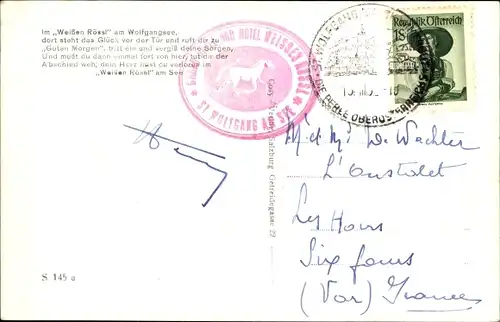 Im „Weißen Rössl" am Wolfgangsee,
dort steht das Glück vor der Tür und ruft dir zu
„Guten Morgen", tritt ein und vergiß deine Sorgen,
Und mußt du dann einmal fort von hier, tut dir der
Abschied weh, dein Herz hast du verloren im
„Weißen Rössl" am See
HOTEL WEISSES RÖSSL
ST. WOLFGANG AM SEE
ST. WOLFGANG
DIE PERLE OBERÖSTERREICHS
Republik Österreich
1S
Salzburg, Getreidegasse 22
M. et Me De Wachter
L'Oustalet
Les Hons
Six fours
(Var) France
S 145 a